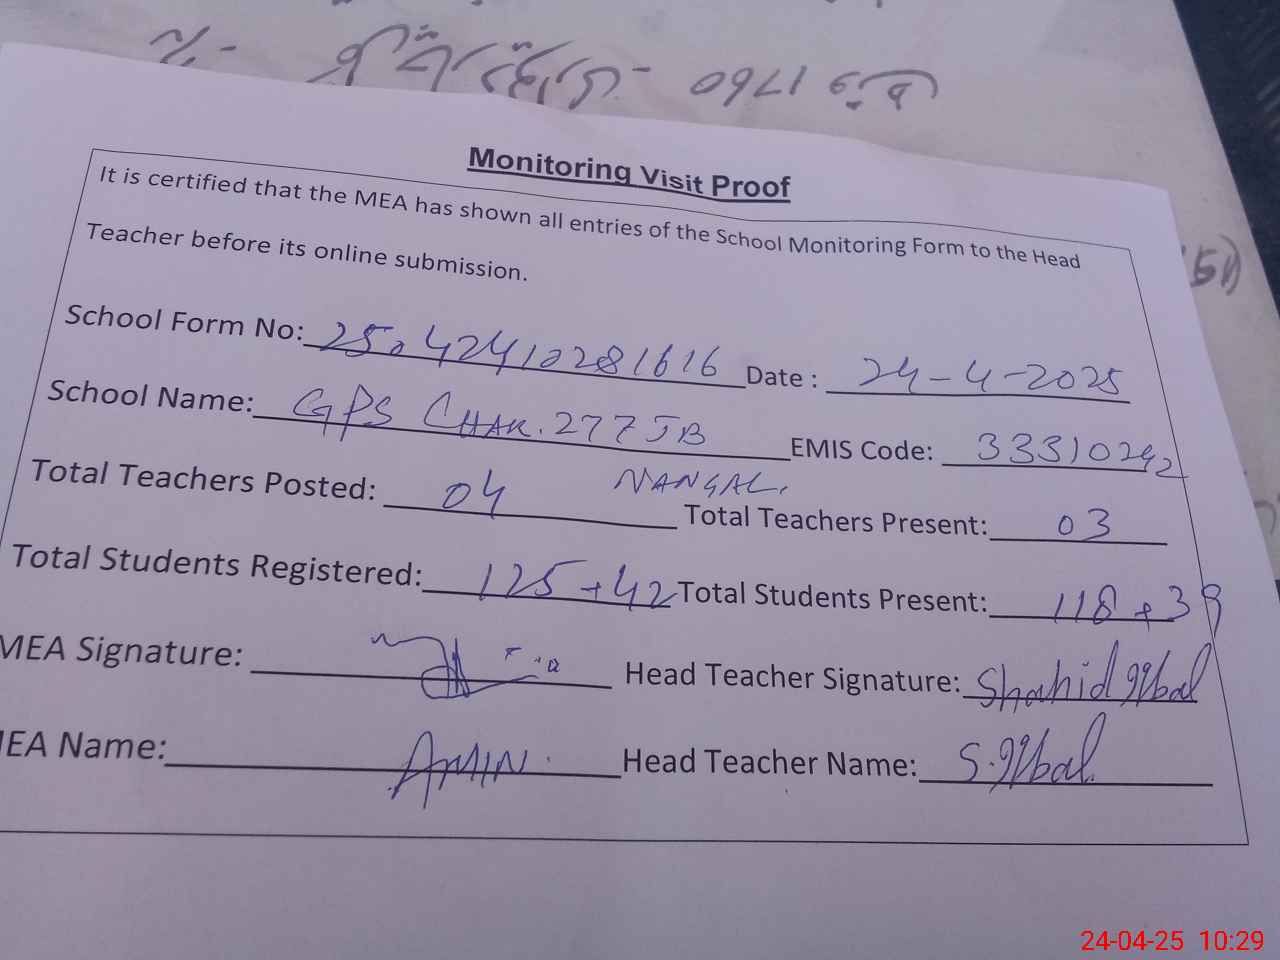 Monitoring Visit Proof
It is certified that the MEA has shown all entries of the School Monitoring Form to the Head
Teacher before its online submission.
School Form No: 25042410281616 Date : 24-4-2025
School Name: GPS CHAK. 277 JB NANGAL. EMIS Code: 33310292
Total Teachers Posted: 04 Total Teachers Present: 03
Total Students Registered: 125+42 Total Students Present: 118+39
MEA Signature: Head Teacher Signature: Shahid Iqbal
MEA Name: AMIN. Head Teacher Name: S. Iqbal
24-04-25 10:29